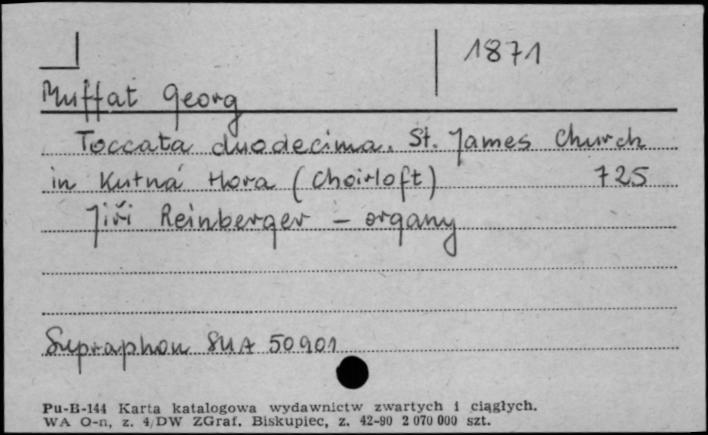 1871
Muffat Georg
Toccata duodecima. St. James Church
in Kutná Hora (Choirloft) 725
Jiří Reinberger – organy
Supraphon SUA 50901
Pu-B-144 Karta katalogowa wydawnictw zwartych i ciągłych.
WA O-n, z. 4/DW ZGraf. Biskupiec, z. 42-90 2 070 000 szt.